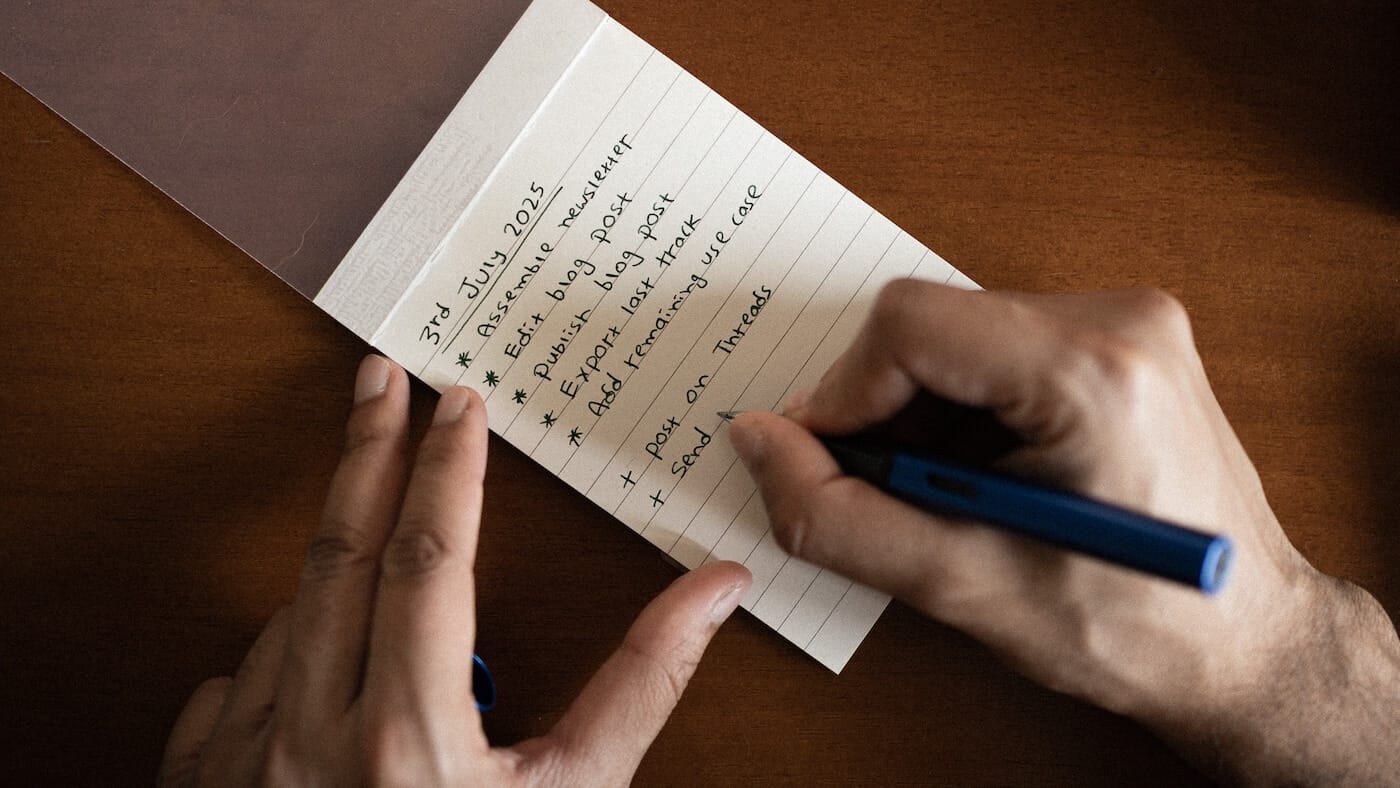 3rd July 2025
* Assemble newsletter
* Edit blog post
* Publish blog post
* Export last track
* Add remaining use case
+ Post on Threads
+ Send